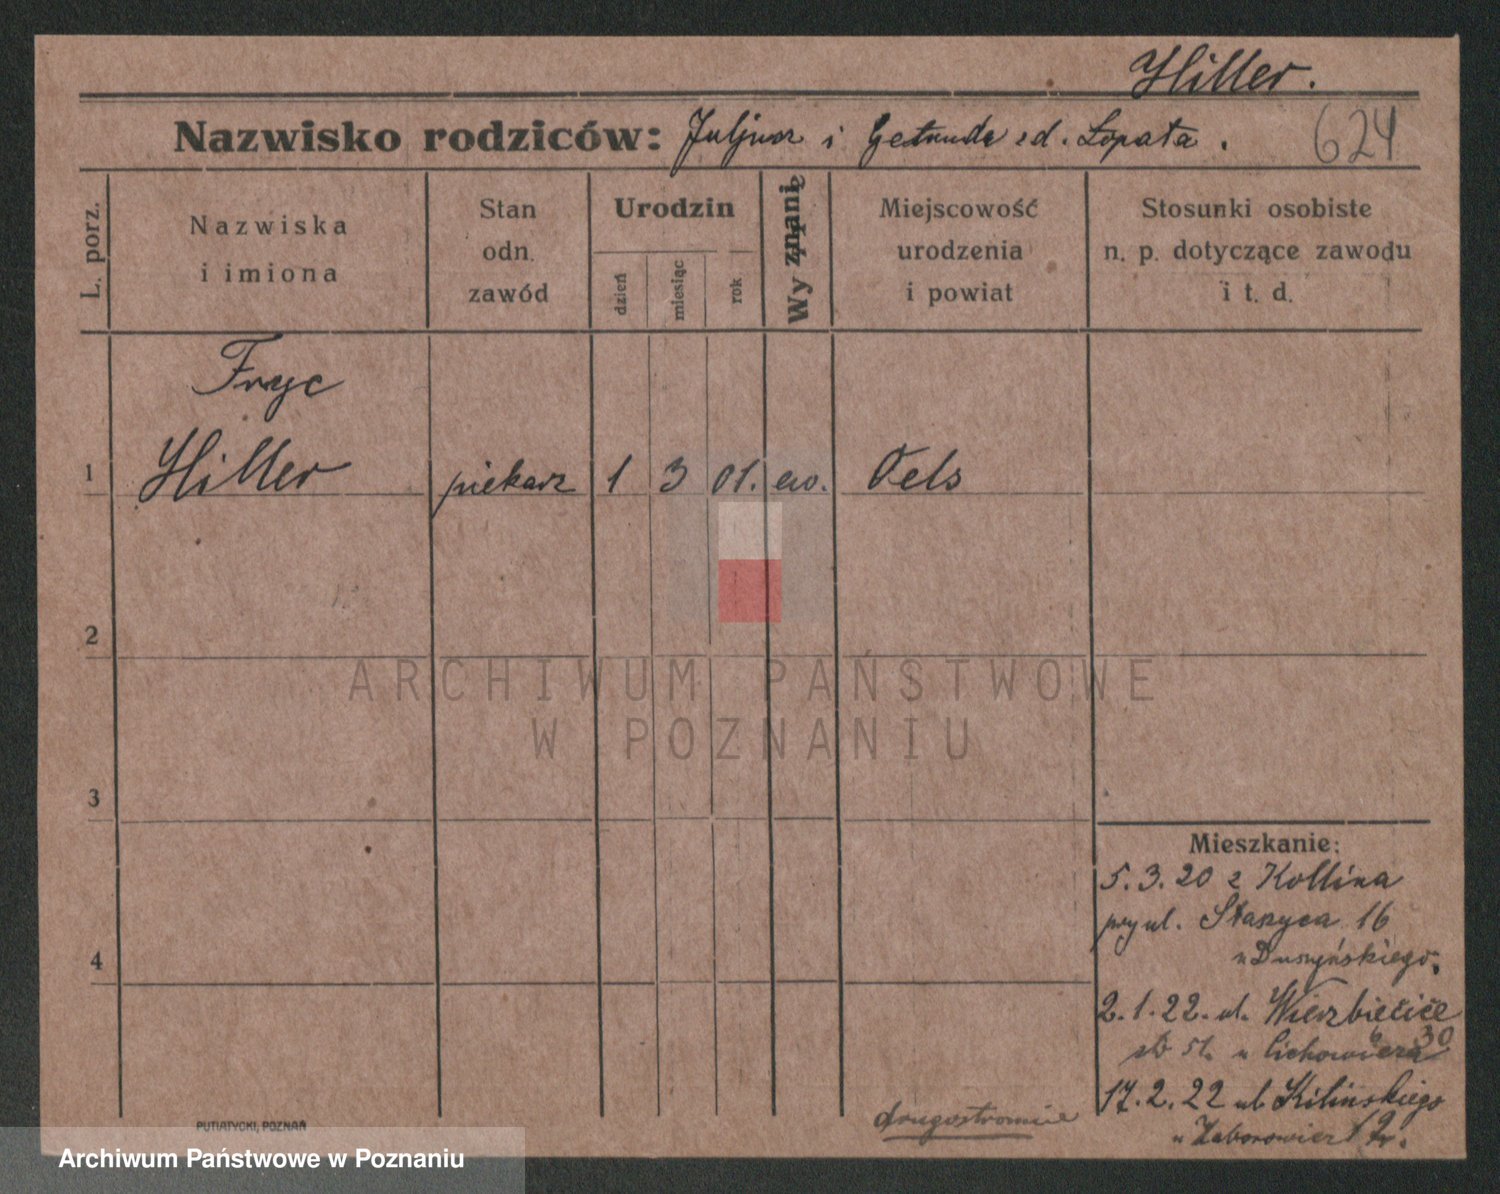 Hiller.
Nazwisko rodziców: Juljusz i Getruda zd. Łopata. 624
L. porz.
Nazwiska
i imiona
Stan
odn.
zawód
Urodzin
dzień
miesiąc
rok
Wyznanie
Miejscowość
urodzenia
i powiat
Stosunki osobiste
n. p. dotyczące zawodu
i t. d.
Fryc
1 Hiller piekarz 1 3 01. ew. Oels
2
ARCHIWUM PAŃSTWOWE
W POZNANIU
3
4
Mieszkanie:
5.3.20 z Kollina
przy ul. Staszyca 16
u Duszyńskiego.
2.1.22. ul. Wierzbięcice
30
u Cichowicza
17.2.22 ul Kilinskiego
u
drugostronnie
PUTIATYCKI, POZNAŃ
Archiwum Państwowe w Poznaniu